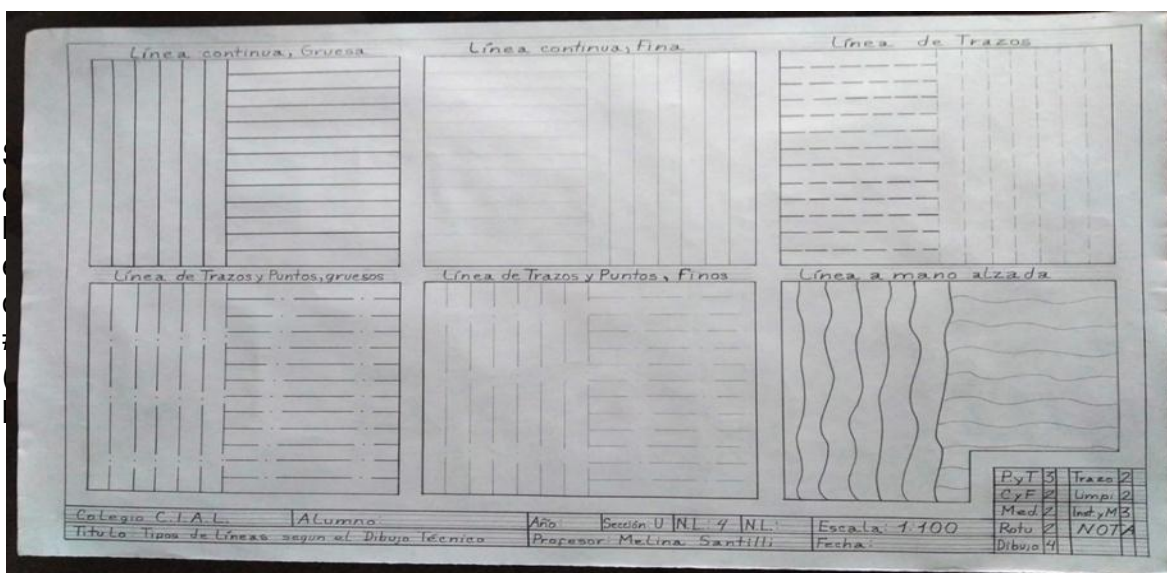 Línea continua, Gruesa
Línea continua, Fina
Línea de Trazos
Línea de Trazos y Puntos, gruesos
Línea de Trazos y Puntos, Finos
Línea a mano alzada
Colegio C.I.A.L. Alumno: Año: Sección: U N.L.: 4 N.L.: Escala: 1:100
Titulo Tipos de Líneas segun el Dibujo Técnico Profesor: Melina Santilli Fecha:
P.yT 3 Trazo 2
C y F 2 Limpi 2
Med. 2 Inst.yM 3
Rotu 2 NOTA
Dibujo 4